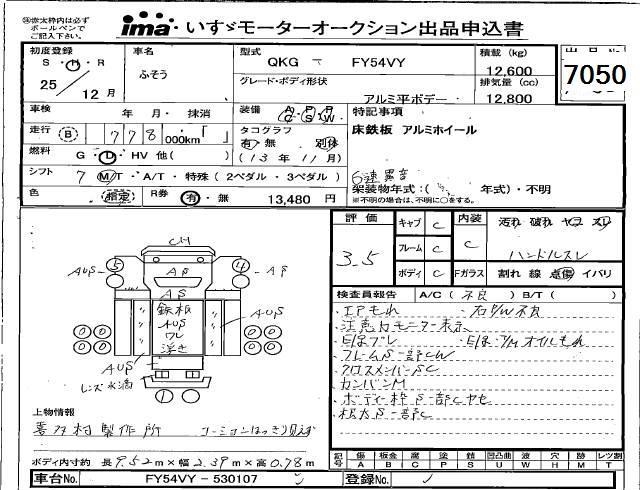 ㊟赤太枠内は必ず
ボールペンで
ご記入下さい。
ima いすゞモーターオークション出品申込書
初度登録 車名 型式 積載 (kg) 出品No
S・H・R ふそう QKG — FY54VY 12,600 7050
25 / 12月 グレード・ボディ形状 排気量 (cc)
アルミ平ボデー 12,800
車検 年 月・抹消 装備 A/C P/S P/W 特記事項
走行 B 778,000km「 」 タコグラフ 床鉄板 アルミホイール
燃料 G・D・HV 他( ) 有・無 別体
(13年 11月)
シフト 7 M/T・A/T・特殊(2ペダル・3ペダル) 6速異音
色 指定 R券 有・無 13,480 円 架装物年式:( 年式)・不明
※不明の場合は、不明に○をする。
評価 キャブ C 内装 汚れ 破れ ヤコゲ スレ
3.5 フレーム C C ハンドルスレ
ボディ C Fガラス 割れ 線 点傷 イバリ
検査員報告 A/C(不良) B/T( )
・エアもれ ・右P/W不良
・注意白モニター表示
・フレームS一部CW
・クロスメンバーSC
・カンバンM
・ボディー枠S一部Cヤセ
・根太S一部C
CM
AUS 5 AP 4 AP
AS
鉄板
AUS
ワレ
浮き
AUS
AUS
レンズ水滴
上物情報
コーションはっきり見えず
ボディ内寸約 長 9.52m×幅 2.39m×高 0.78m
記号 傷 板金 腐 塗 錆 凹凸曲 波 穴 跡 レツ割
A B C P S U W H M T
車台No. FY54VY − 530107 登録No.